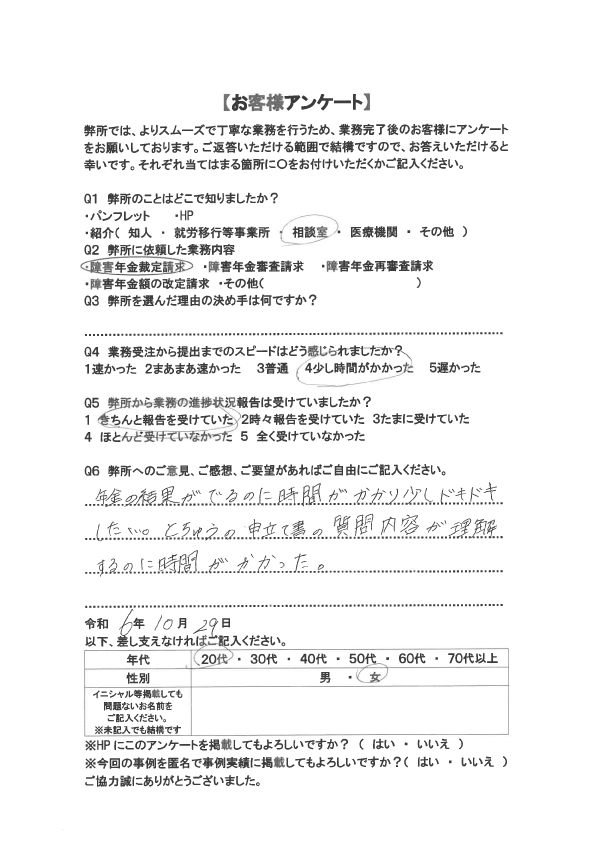 【お客様アンケート】
弊所では、よりスムーズで丁寧な業務を行うため、業務完了後のお客様にアンケート
をお願いしております。ご返答いただける範囲で結構ですので、お答えいただけると
幸いです。それぞれ当てはまる箇所に〇をお付けいただくかご記入ください。
Q1 弊所のことはどこで知りましたか？
・パンフレット ・HP
・紹介（ 知人 ・ 就労移行等事業所 ・ 相談室 ・ 医療機関 ・ その他 ）
Q2 弊所に依頼した業務内容
・障害年金裁定請求 ・障害年金審査請求 ・障害年金再審査請求
・障害年金額の改定請求 ・その他（ ）
Q3 弊所を選んだ理由の決め手は何ですか？
Q4 業務受注から提出までのスピードはどう感じられましたか？
1速かった 2まあまあ速かった 3普通 4少し時間がかかった 5遅かった
Q5 弊所から業務の進捗状況報告は受けていましたか？
1 きちんと報告を受けていた 2時々報告を受けていた 3たまに受けていた
4 ほとんど受けていなかった 5 全く受けていなかった
Q6 弊所へのご意見、ご感想、ご要望があればご自由にご記入ください。
年金の結果がでるのに時間がかかり少しドキドキ
した。とちゅうの申立て書の質問内容が理解
するのに時間がかかった。
令和 6年 10月 29日
以下、差し支えなければご記入ください。
年代 20代 ・ 30代 ・ 40代 ・ 50代 ・ 60代 ・ 70代以上
性別 男 ・ 女
イニシャル等掲載しても
問題ないお名前を
ご記入ください。
※未記入でも結構です
※HPにこのアンケートを掲載してもよろしいですか？ （ はい ・ いいえ ）
※今回の事例を匿名で事例実績に掲載してもよろしいですか？（ はい ・ いいえ ）
ご協力誠にありがとうございました。